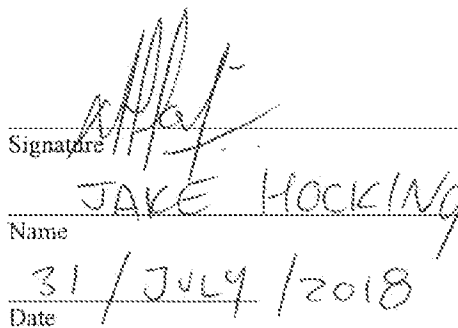 Signature
JAKE HOCKING
Name
31 / JULY / 2018
Date